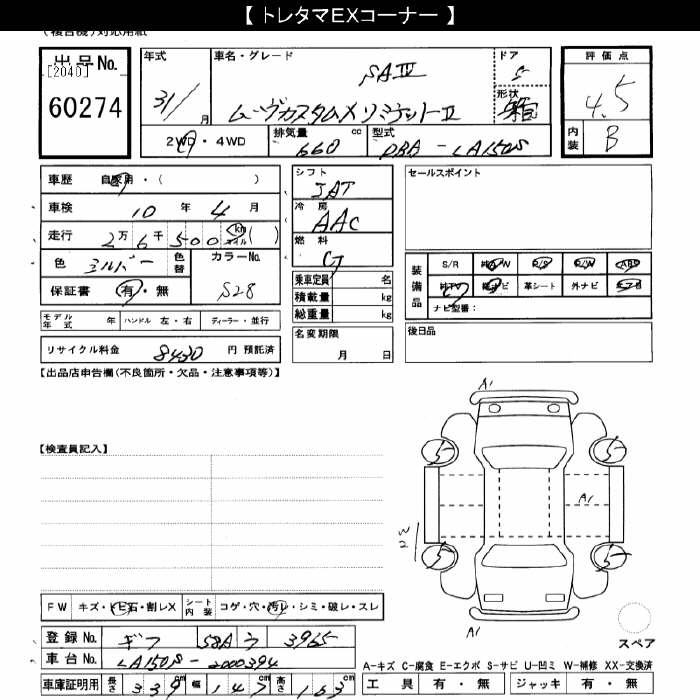 【 トレタマEXコーナー 】
(複合機)対応用紙
出品No.
[2040]
60274
年式
31/ 月
車名・グレード
SAⅣ
ムーヴカスタムXリミテットⅡ
ドア
5
形状
評価点
4.5
内装
B
2WD・4WD
排気量
660 cc
型式
DBA-LA150S
車歴 自家用・( )
車検 10年4月
走行 2万6千500 km マイル ( )
色 シルバー
色替
カラーNo.
S28
保証書 有・無
モデル年式 年
ハンドル 左・右
ディーラー・並行
リサイクル料金 8430 円 預託済
シフト
IAT
冷房
AAC
燃料
G
乗車定員 名
積載量 kg
総重量 kg
名変期限
月 日
セールスポイント
装備品
S/R
純A/W
P/S
P/W
ABS
純TV
純ナビ
革シート
外ナビ
エアB
ナビ型番:
後日品
【出品店申告欄(不良箇所・欠品・注意事項等)】
【検査員記入】
A1
A1
A1
5
5
5
5
スペア
FW
キズ・トビ石・割レX
シート内装
コゲ・穴・汚レ・シミ・破レ・スレ
登録No. ギフ 58A ウ 3965
車台No. LA150S-2000394
車庫証明用 長さ 339cm 幅 147cm 高さ 163cm
A-キズ C-腐食 E-エクボ S-サビ U-凹ミ W-補修 XX-交換済
工具 有・無
ジャッキ 有・無